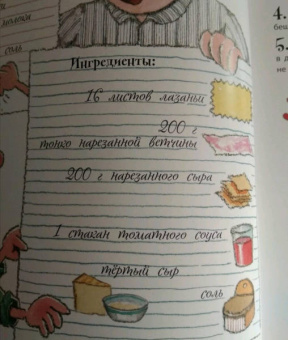 соль
Ингредиенты:
16 листов лазаньи
200 г
тонко нарезанной ветчины
200 г нарезанного сыра
1 стакан томатного соуса
тёртый сыр
соль
4.
5.